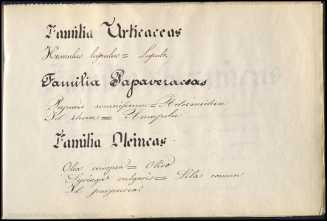 Familia Urticaceas
Humulus lupulus = Lupulo
Familia Papaveraceas
Papaver somniferum =
Id. rheas = Amapola
Familia Oleineas
Olea europea = Olivo
Syringa vulgaris = Lila comun
Id.